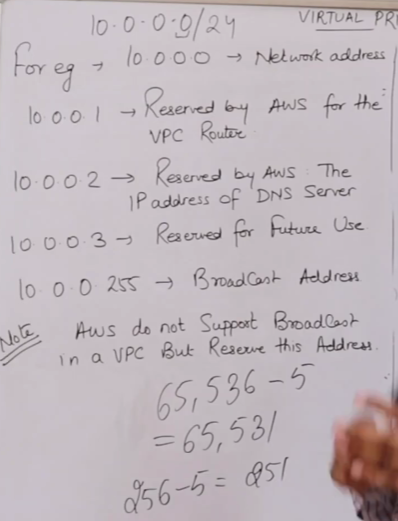 10.0.0.0/24
VIRTUAL PR
For eg → 10.0.0.0 → Network address
10.0.0.1 → Reserved by AWS for the
VPC Router.
10.0.0.2 → Reserved by AWS: The
IP address of DNS Server
10.0.0.3 → Reserved for Future Use
10.0.0.255 → BroadCast Address
Note AWS do not Support BroadCast
in a VPC But Reserve this Address.
65,536-5
=65,531
256-5= 251